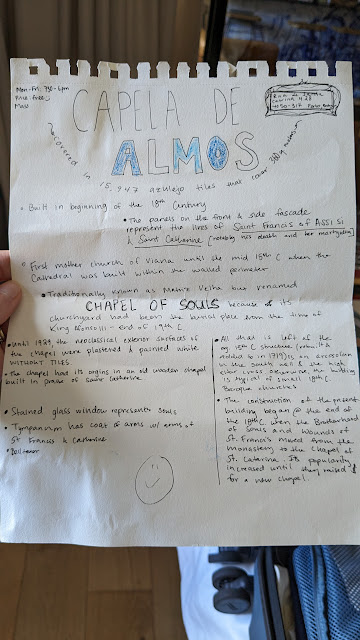 Mon-Fri: 730-6pm
Price: free
Mass
CAPELA DE
ALMOS
Rua de Santa
Catarina 428
4150-317 Porto
covered in 15,947 azulejo tiles that cover 360 sq meters
• Built in beginning of the 18th Century
• The panels on the front & side facade
represent the lives of Saint Francis of Assisi
& Saint Catherine (notably his death and her martyrdom)
• First mother church of Viana until the mid 15th C when the
Cathedral was built within the walled perimeter
• Traditionally known as Matriz Velha but renamed
CHAPEL OF SOULS because of its
churchyard had been the burial place from the time of
King Afonso III - end of 19th C
• Until 1929, the neoclassical exterior surfaces of
the chapel were plastered & painted white
WITHOUT TILES
• The chapel has its origins in an old wooden chapel
built in praise of Saint Catherine
• Stained glass window represents souls
• Tympanum has coat of arms w/ arms of
St Francis & Catherine
• Bell tower
• All that is left of the
structure
added to in 1719) is an arcosolium
in the south wall & the high
altar cross otherwise the building
is typical of small 18th C
Baroque churches
• The construction of the present
building began @ the end of
the 18th C when the Brotherhood
of Souls and Wounds of
St. Francis moved from the
monastery to the Chapel of
St. Catarina. Its popularity
increased until they raised $
for a new chapel.